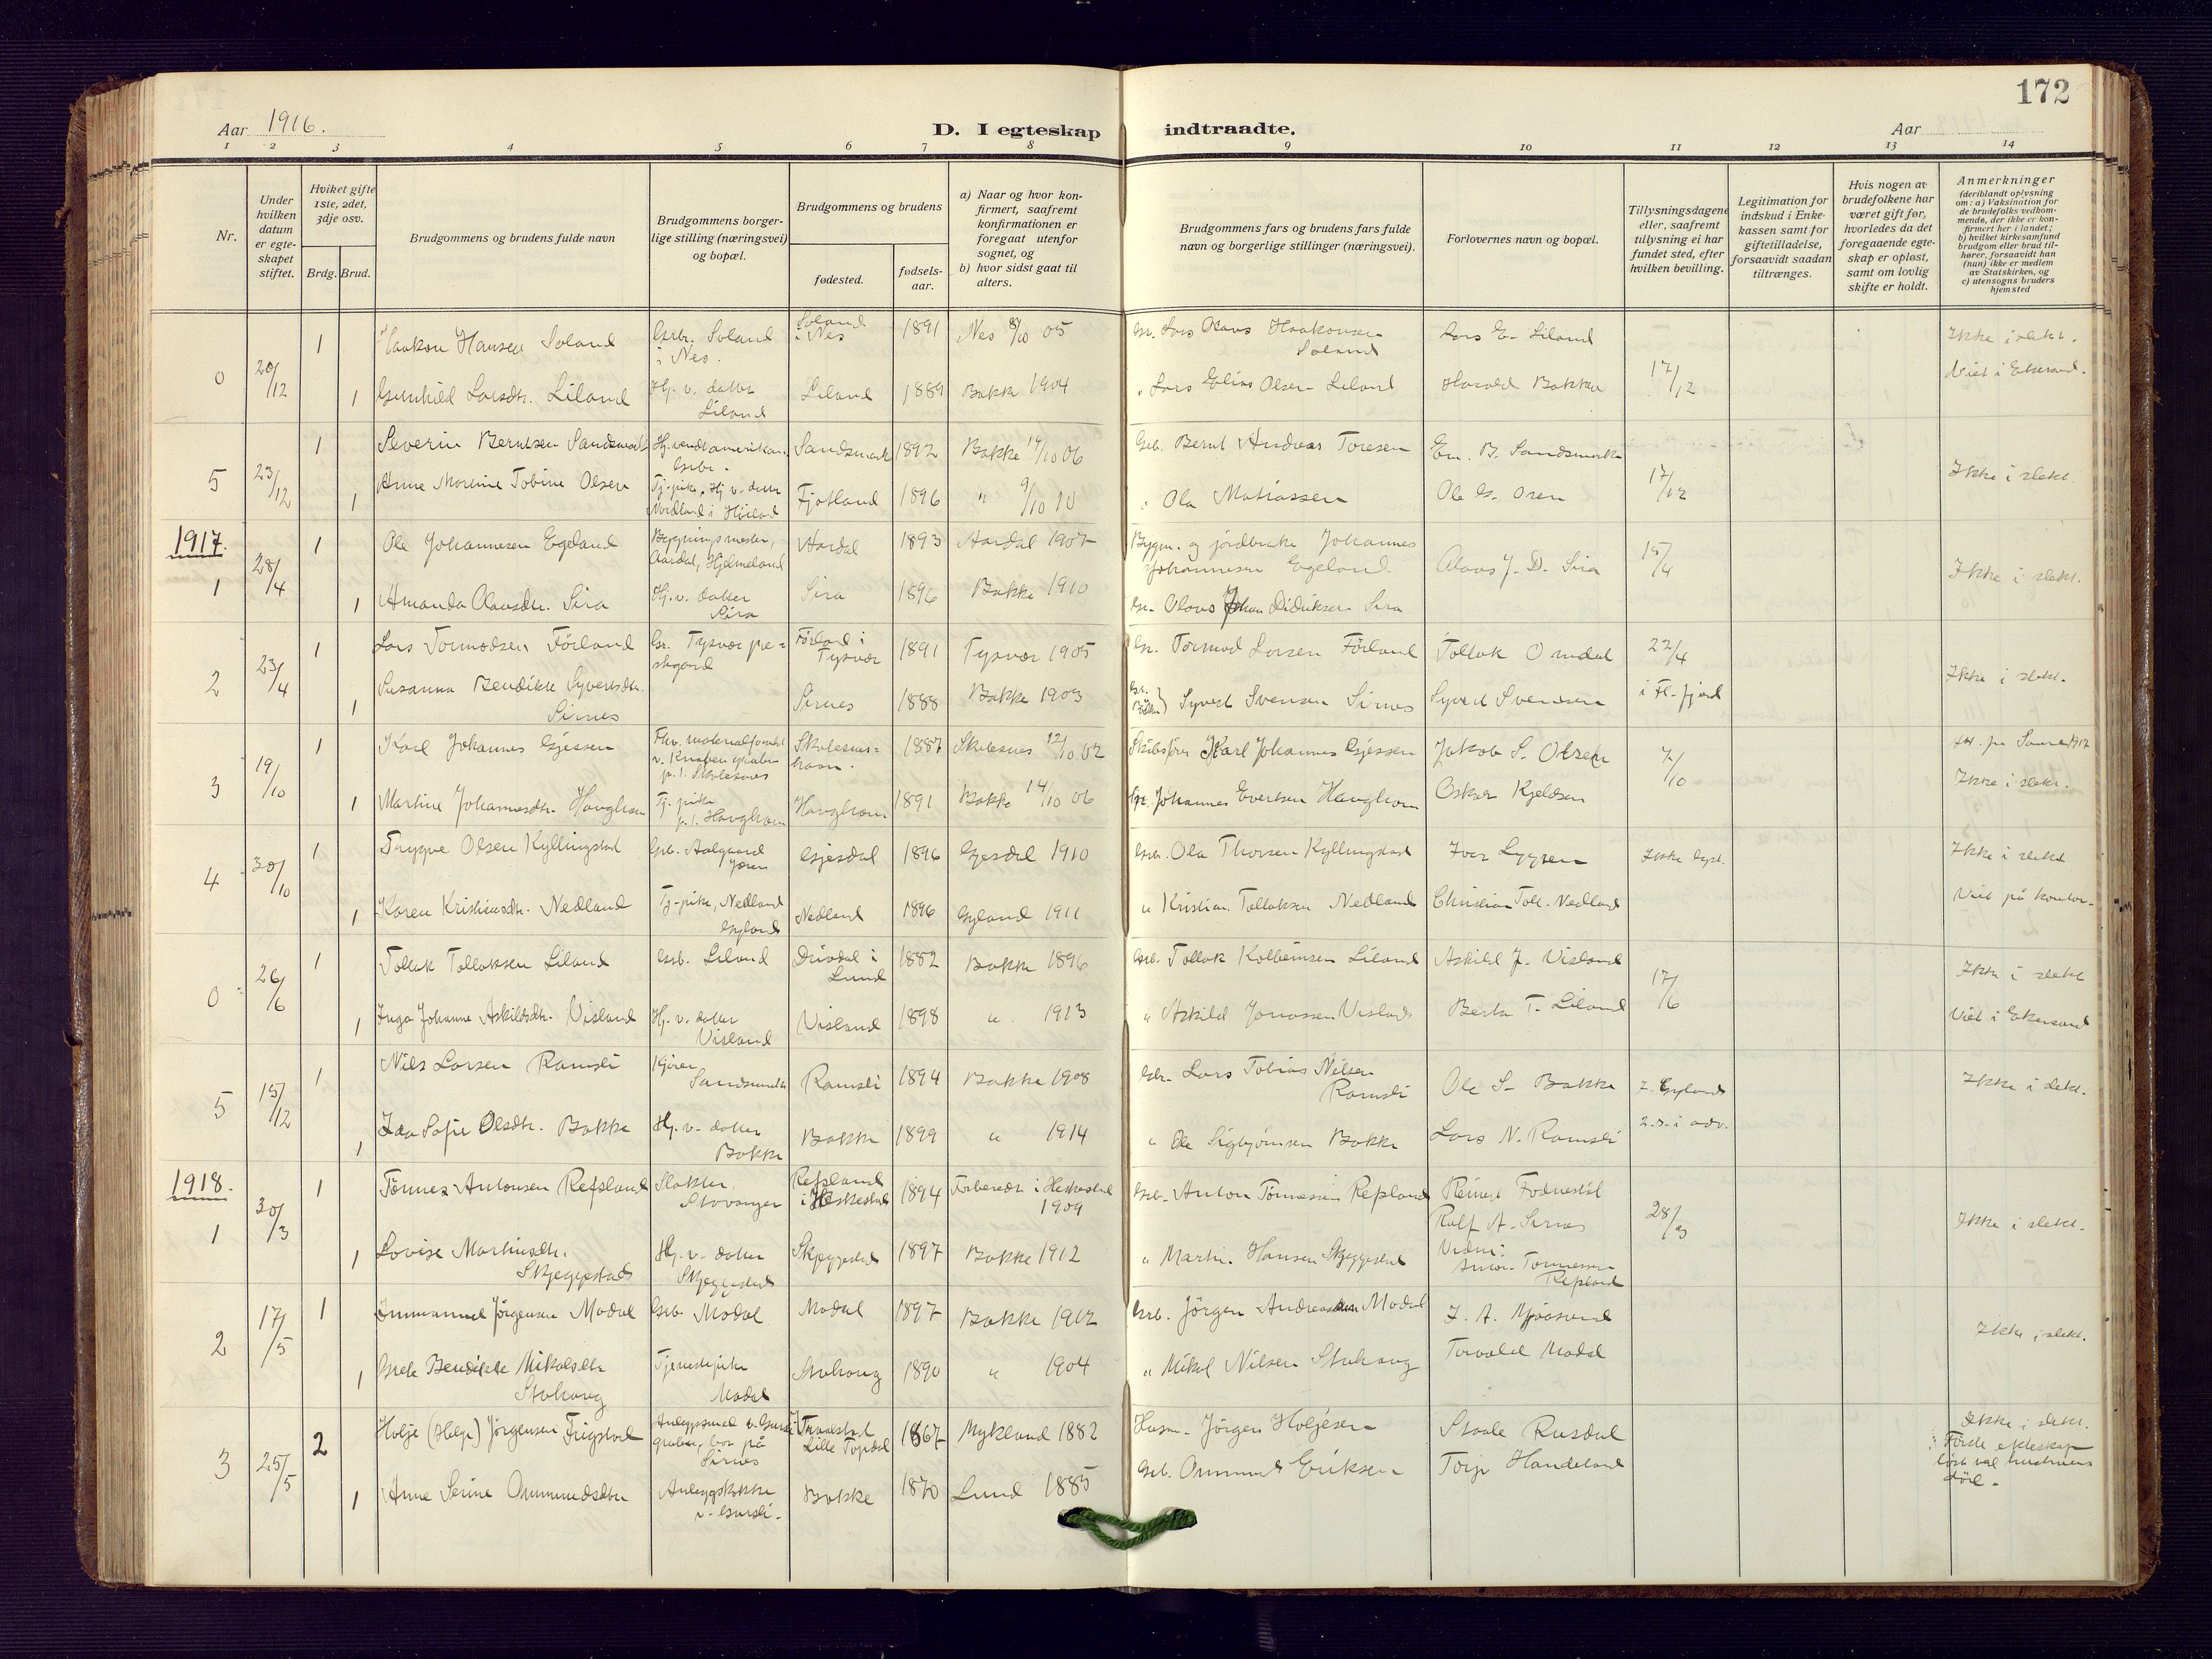 172
Aar 1916.
D. I egteskap indtraadte.
Aar
1 2 3 4 5 6 7 8 9 10 11 12 13 14
Nr.
Under hvilken datum er egteskapet stiftet.
Hvilket gifte 1ste, 2det, 3dje osv.
Brdg. Brud.
Brudgommens og brudens fulde navn
Brudgommens borgerlige stilling (næringsvei) og bopæl.
Brudgommens og brudens
fødested. fødselsaar.
a) Naar og hvor konfirmert, saafremt konfirmationen er foregaat utenfor sognet, og
b) hvor sidst gaat til alters.
Brudgommens fars og brudens fars fulde navn og borgerlige stillinger (næringsvei).
Forlovernes navn og bopæl.
Tillysningsdagene eller, saafremt tillysning ei har fundet sted, efter hvilken bevilling.
Legitimation for indskud i Enkekassen samt for giftetilladelse, forsaavidt saadan tiltrænges.
Hvis nogen av brudefolkene har været gift før, hvorledes da det foregaaende egteskap er opløst, samt om lovlig skifte er holdt.
Anmerkninger (deriblandt oplysning om: a) Vaksination for de brudefolks vedkommende, der ikke er konfirmert her i landet; b) hvilket kirkesamfund brudgom eller brud tilhører, forsaavidt han (hun) ikke er medlem av Statskirken, og c) utensogns bruders hjemsted
0 20/12 1 Haakon Hansen Soland Grbr. Soland i Nes. Soland i Nes 1891 Nes 8/10 05 Gr. Lars Olaus Haakonsen Soland Lars E. Liland 17/12 Ikke i slekt.
1 Gunhild Larsdtr. Liland Hj. v. datter Liland Liland 1889 Bakke 1904 " Lars Elias Olsen Liland Harald Bakke Viet i Ekersund.
5 23/12 1 Severin Berntsen Sandsmark Hj.vendt amerikan. Grbr. Sandsmark 1892 Bakke 14/10 06 Grb. Bernt Andreas Toresen Em. B. Sandsmark 17/12 Ikke i slekt.
1 Anne Martine Tobine Olsen Tj.pike, Hj. v. datter Fjotland 1896 " 9/10 10 " Ola Matiassen Ole G. Oren
1917.
1 28/4 1 Ole Johannesen Egeland Bygningsmester, Aardal, Hjelmeland Aardal 1893 Aardal 1907 Bygm. og jordbruker Johannes Johannesen Egeland. Olaus J. D. Sira 15/4 Ikke i slekt.
1 Amanda Olausdtr. Sira Hj. v. datter Sira Sira 1896 Bakke 1910 Gr. Olaus Johan Didriksen Sira
2 23/4 1 Lars Tormodsen Förland Gr. Tysvær prestegaard Förland i Tysvær 1891 Tysvær 1905 Gr. Tormod Larsen Förland Tollak Omdal 22/4 Ikke i slekt.
1 Susanna Bendikte Syvertsdtr. Sirnes Sirnes 1888 Bakke 1903 Syvert Svensen Sirnes Syvert Svendsen i Fl.fjord
3 19/10 1 Karl Johannes Gjessen Fhv. materialforvalt. v. Knaben gruber p.t. Skolesnes Skolesneshavn. 1887 Skolesnes 12/10 02 Skibsfører Karl Johannes Gjessen Jakob S. Olsen 7/10
1 Martine Johannesdtr. Haughom Tj.pike p.t. Haughom Haughom 1891 Bakke 14/10 06 Gr. Johannes Evertsen Haughom Oskar Kjeldsen Ikke i slekt.
4 30/10 1 Trygve Olsen Kyllingstad Grb. Aalgaard Jæren Gjesdal 1896 Gjesdal 1910 Grb. Ola Thorsen Kyllingstad Ivar Lygren Ikke lyst. Ikke i slekt
1 Karen Kristiansdtr. Nedland Tj.pike, Nedland Gyland Nedland 1896 Gyland 1911 " Kristian Tollaksen Nedland Christian Toll. Nedland Viet på kontor.
0 26/6 1 Tollak Tollaksen Liland Grb. Liland Drivdal i Lund 1882 Bakke 1896 Grb. Tollak Kolbeinsen Liland Askild J. Visland 17/6 Ikke i slekt
1 Inga Johanne Askildsdtr. Visland Hj. v. datter Visland Visland 1898 " 1913 " Askild Jonassen Visland Berta T. Liland Viet i Ekersund
5 15/12 1 Nils Larsen Ramsli Kjører Sandsmark Ramsli 1894 Bakke 1908 Gbr. Lars Tobias Nilsen Ramsli Ole S. Bakke I. Gyland Ikke i slekt.
1 Ida Sofie Olsdtr. Bakke Hj. v. datter Bakke Bakke 1899 " 1914 " Ole Sigbjørnsen Bakke Lars N. Ramsli 2.s. i adv.
1918.
1 30/3 1 Tønnes Antonsen Refsland Slakter Stavanger Refsland i Heskestad 1894 Forberedt i Heskestad 1909 Grb. Anton Tønnessen Refsland Reinert Fodnestøl Rolf A. Sirnes 28/3 Ikke i slekt.
1 Lovise Martinsdtr. Skjeggestad Hj. v. datter Skjeggestad Skjeggestad 1897 Bakke 1912 " Martin Hansen Skjeggestad Vidne: Anton Tønnessen Refsland
2 17/5 1 Immanuel Jørgensen Modal Grb. Modal Modal 1897 Bakke 1912 Grb. Jørgen Andreassen Modal J. A. Mjåsund Ikke i slekt.
1 Grete Bendikte Mikalsdtr. Stuhaug Tjenestepike Modal Stuhaug 1890 " 1904 " Mikal Nilsen Stuhaug Torvald Modal
3 25/5 2 Holje (Helje) Jørgensen Frigstad Anleggsmed v. Gursli gruber, bor på Sirnes Lille Topdal 1867 Mykland 1882 Husm. Jørgen Holjesen Staale Rusdal Ikke i slekt. Første ekteskap løst ved hustruens død.
1 Anne Serine Ommundsdtr. Anleggskokke v. Gursli. Bakke 1870 Lund 1885 Grb. Ommund Eriksen Torje Handeland